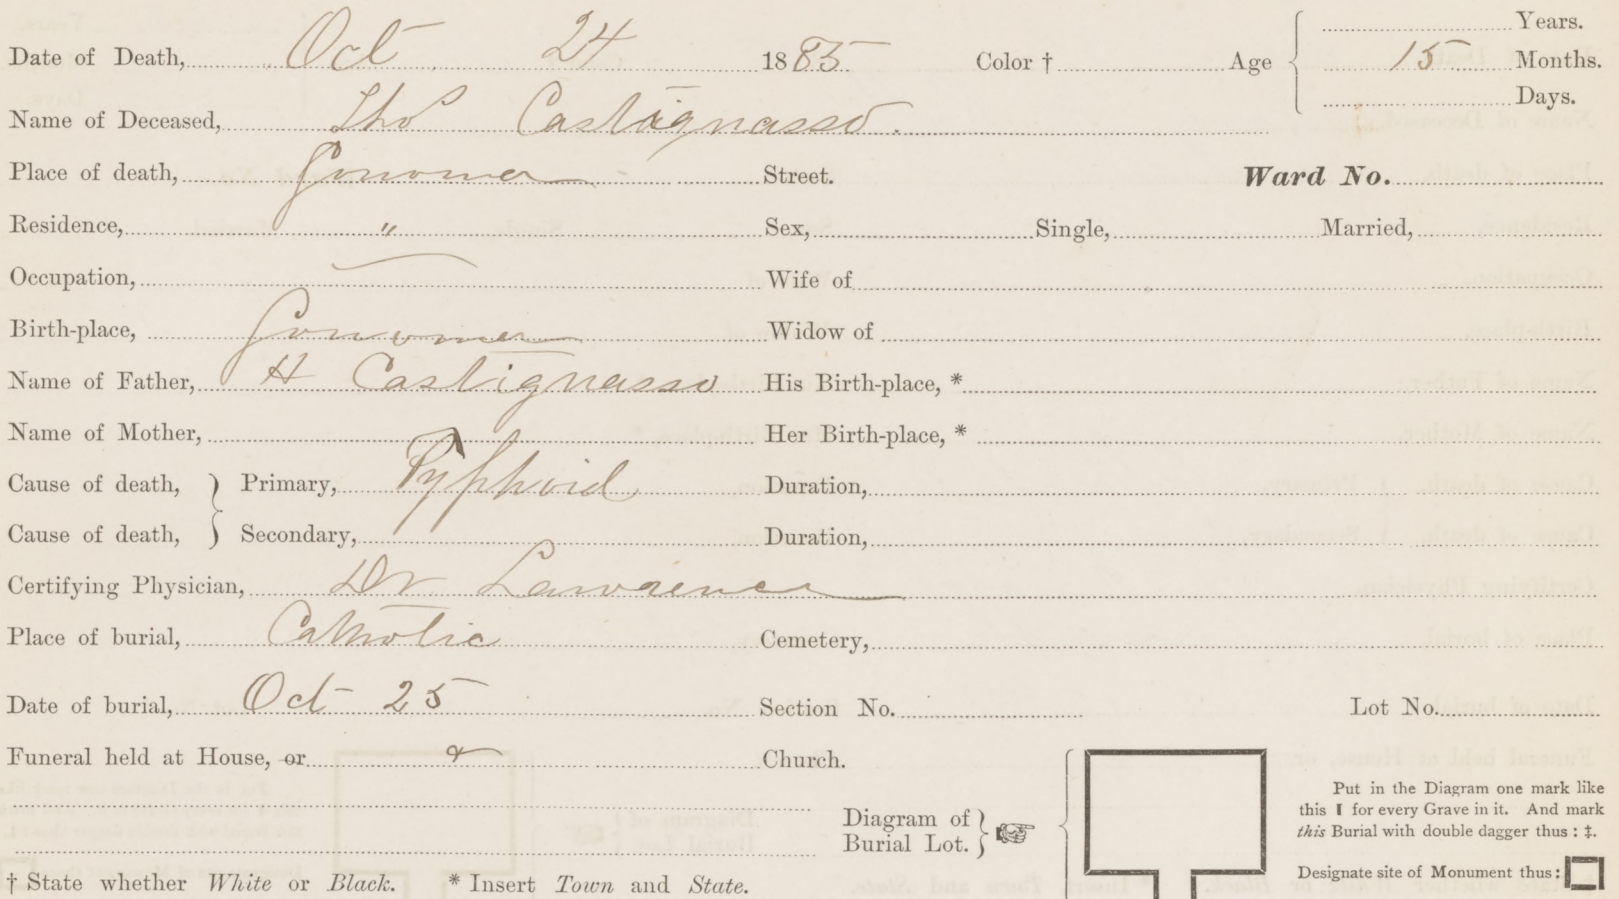 Years.
Date of Death, Oct 24 1885 Color † Age 15 Months.
Days.
Name of Deceased, Thos Castagnasso.
Place of death, Sonoma Street. Ward No.
Residence, " Sex, Single, Married,
Occupation, Wife of
Birth-place, Sonoma Widow of
Name of Father, H Castignasso His Birth-place, *
Name of Mother, Her Birth-place, *
Cause of death, } Primary, Typhoid Duration,
Cause of death, } Secondary, Duration,
Certifying Physician, Dr. Lawrence
Place of burial, Catholic Cemetery,
Date of burial, Oct 25 Section No. Lot No.
Funeral held at House, or & Church.
Diagram of
Burial Lot.
Put in the Diagram one mark like
this I for every Grave in it. And mark
this Burial with double dagger thus : ‡.
Designate site of Monument thus :
† State whether White or Black. * Insert Town and State.